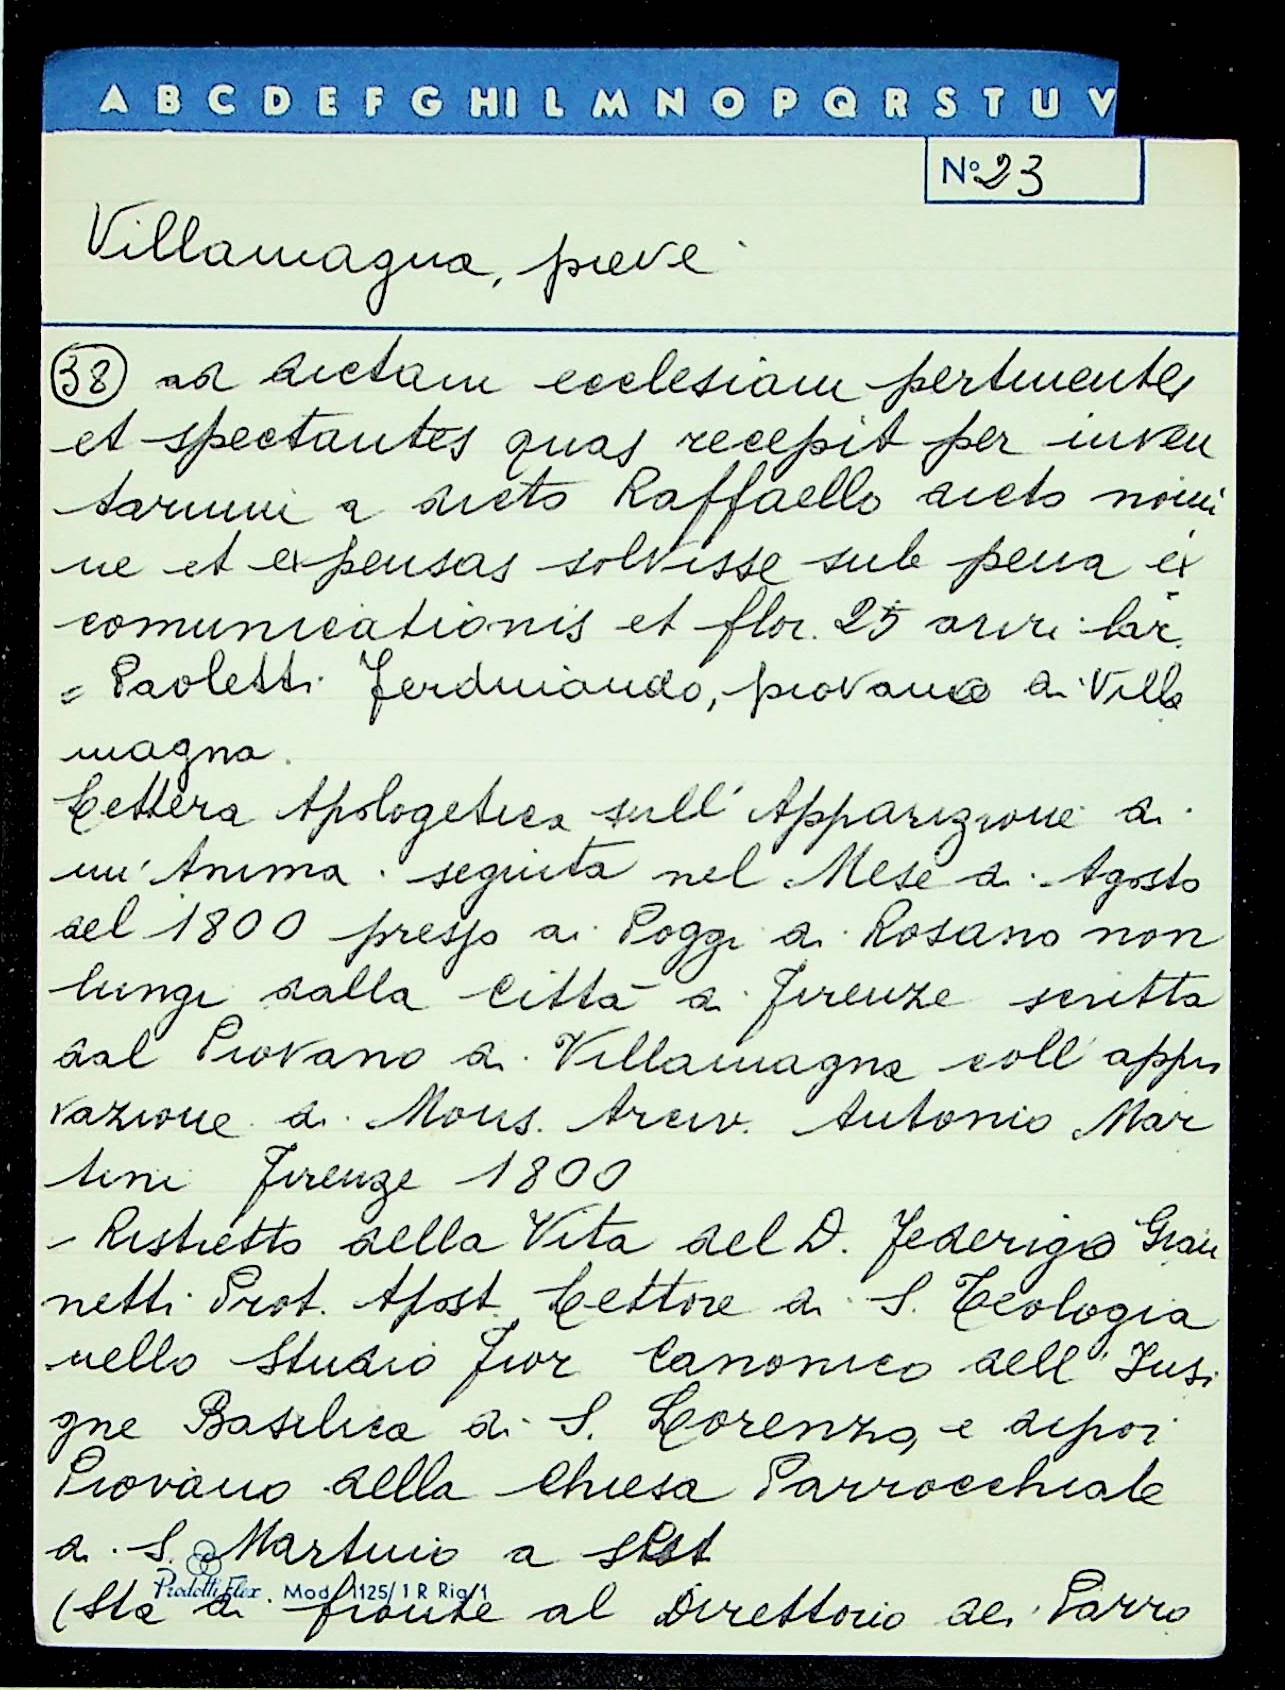 A B C D E F G HI L M N O P Q R S T U V
N° 23
Villamagna, pieve
38 ad dictam ecclesiam pertinentes
et spectantes quas recepit per inven
tarium a dicto Raffaello dicto nomi
ne et expensas solvisse sub pena ex
comunicationis et flor. 25 auri lar.
= Paoletti Ferdinando, piovano di Villa
magna.
Lettera Apologetica sull'Apparizione di
un'Anima seguita nel Mese di Agosto
del 1800 presso ai Poggi di Rosano non
lungi dalla Città di Firenze scritta
dal Piovano di Villamagna coll'appro
vazione di Mons. Arciv. Antonio Mar
tini Firenze 1800
- Ristretto della Vita del D. Federigo Gian
netti Prot. Apost. Lettore di S. Teologia
nello Studio Fior Canonico dell'Insi
gne Basilica di S. Lorenzo, e dipoi
Piovano della Chiesa Parrocchiale
di S. Martino a
Prodotti Flex. Mod. 1125/1 R Rig 1
(Sta di fronte al Direttorio dei Parro